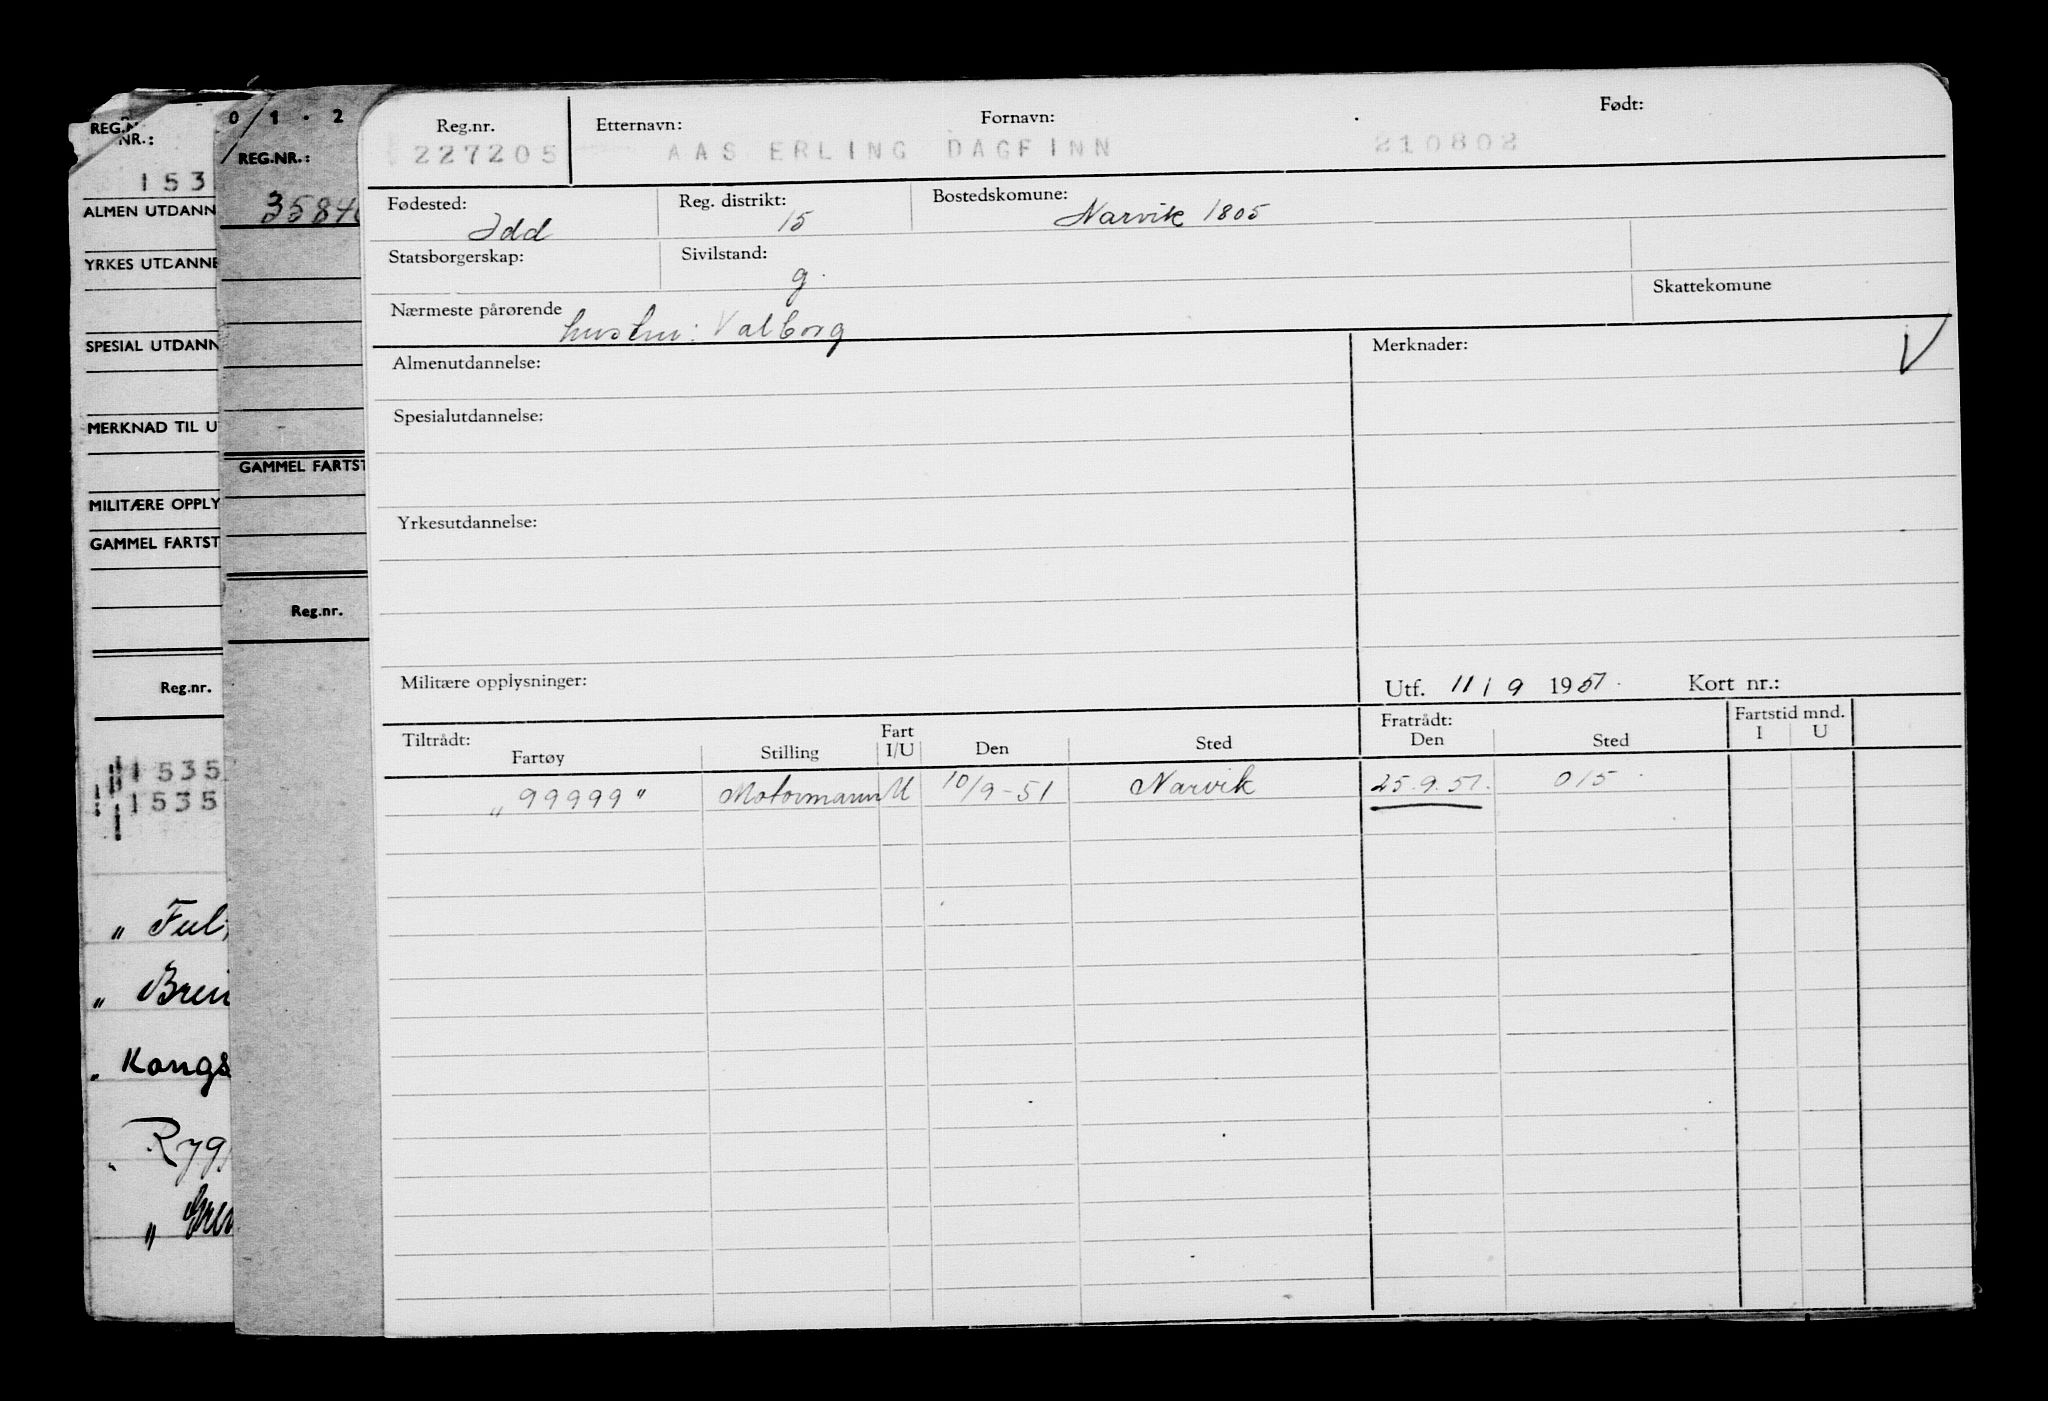 REG.N
NR.:
153
ALMEN UTDANN
YRKES UTDANNE
SPESIAL UTDANN
MERKNAD TIL U
MILITÆRE OPPLY
GAMMEL FARTST
Reg.nr.
1535
1535
„ Ful
„ Brei
„ Kongs
Ryg
„
0 1 . 2
REG.NR.:
3584
GAMMEL FARTST
Reg.nr.
Reg.nr. Etternavn: Fornavn: Født:
227205 AAS ERLING DAGFINN 210802
Fødested: Reg. distrikt: Bostedskomune:
Idd 15 Narvik 1805
Statsborgerskap: Sivilstand:
g.
Skattekomune
Nærmeste pårørende
hustru: Valborg
Almenutdannelse: Merknader: V
Spesialutdannelse:
Yrkesutdannelse:
Militære opplysninger: Utf. 11/9 1951. Kort nr.:
Tiltrådt: Fart Fratrådt: Fartstid mnd.
Fartøy Stilling I/U Den Sted Den Sted I U
„99999" Motormann U 10/9-51 Narvik 25.9.51. 015